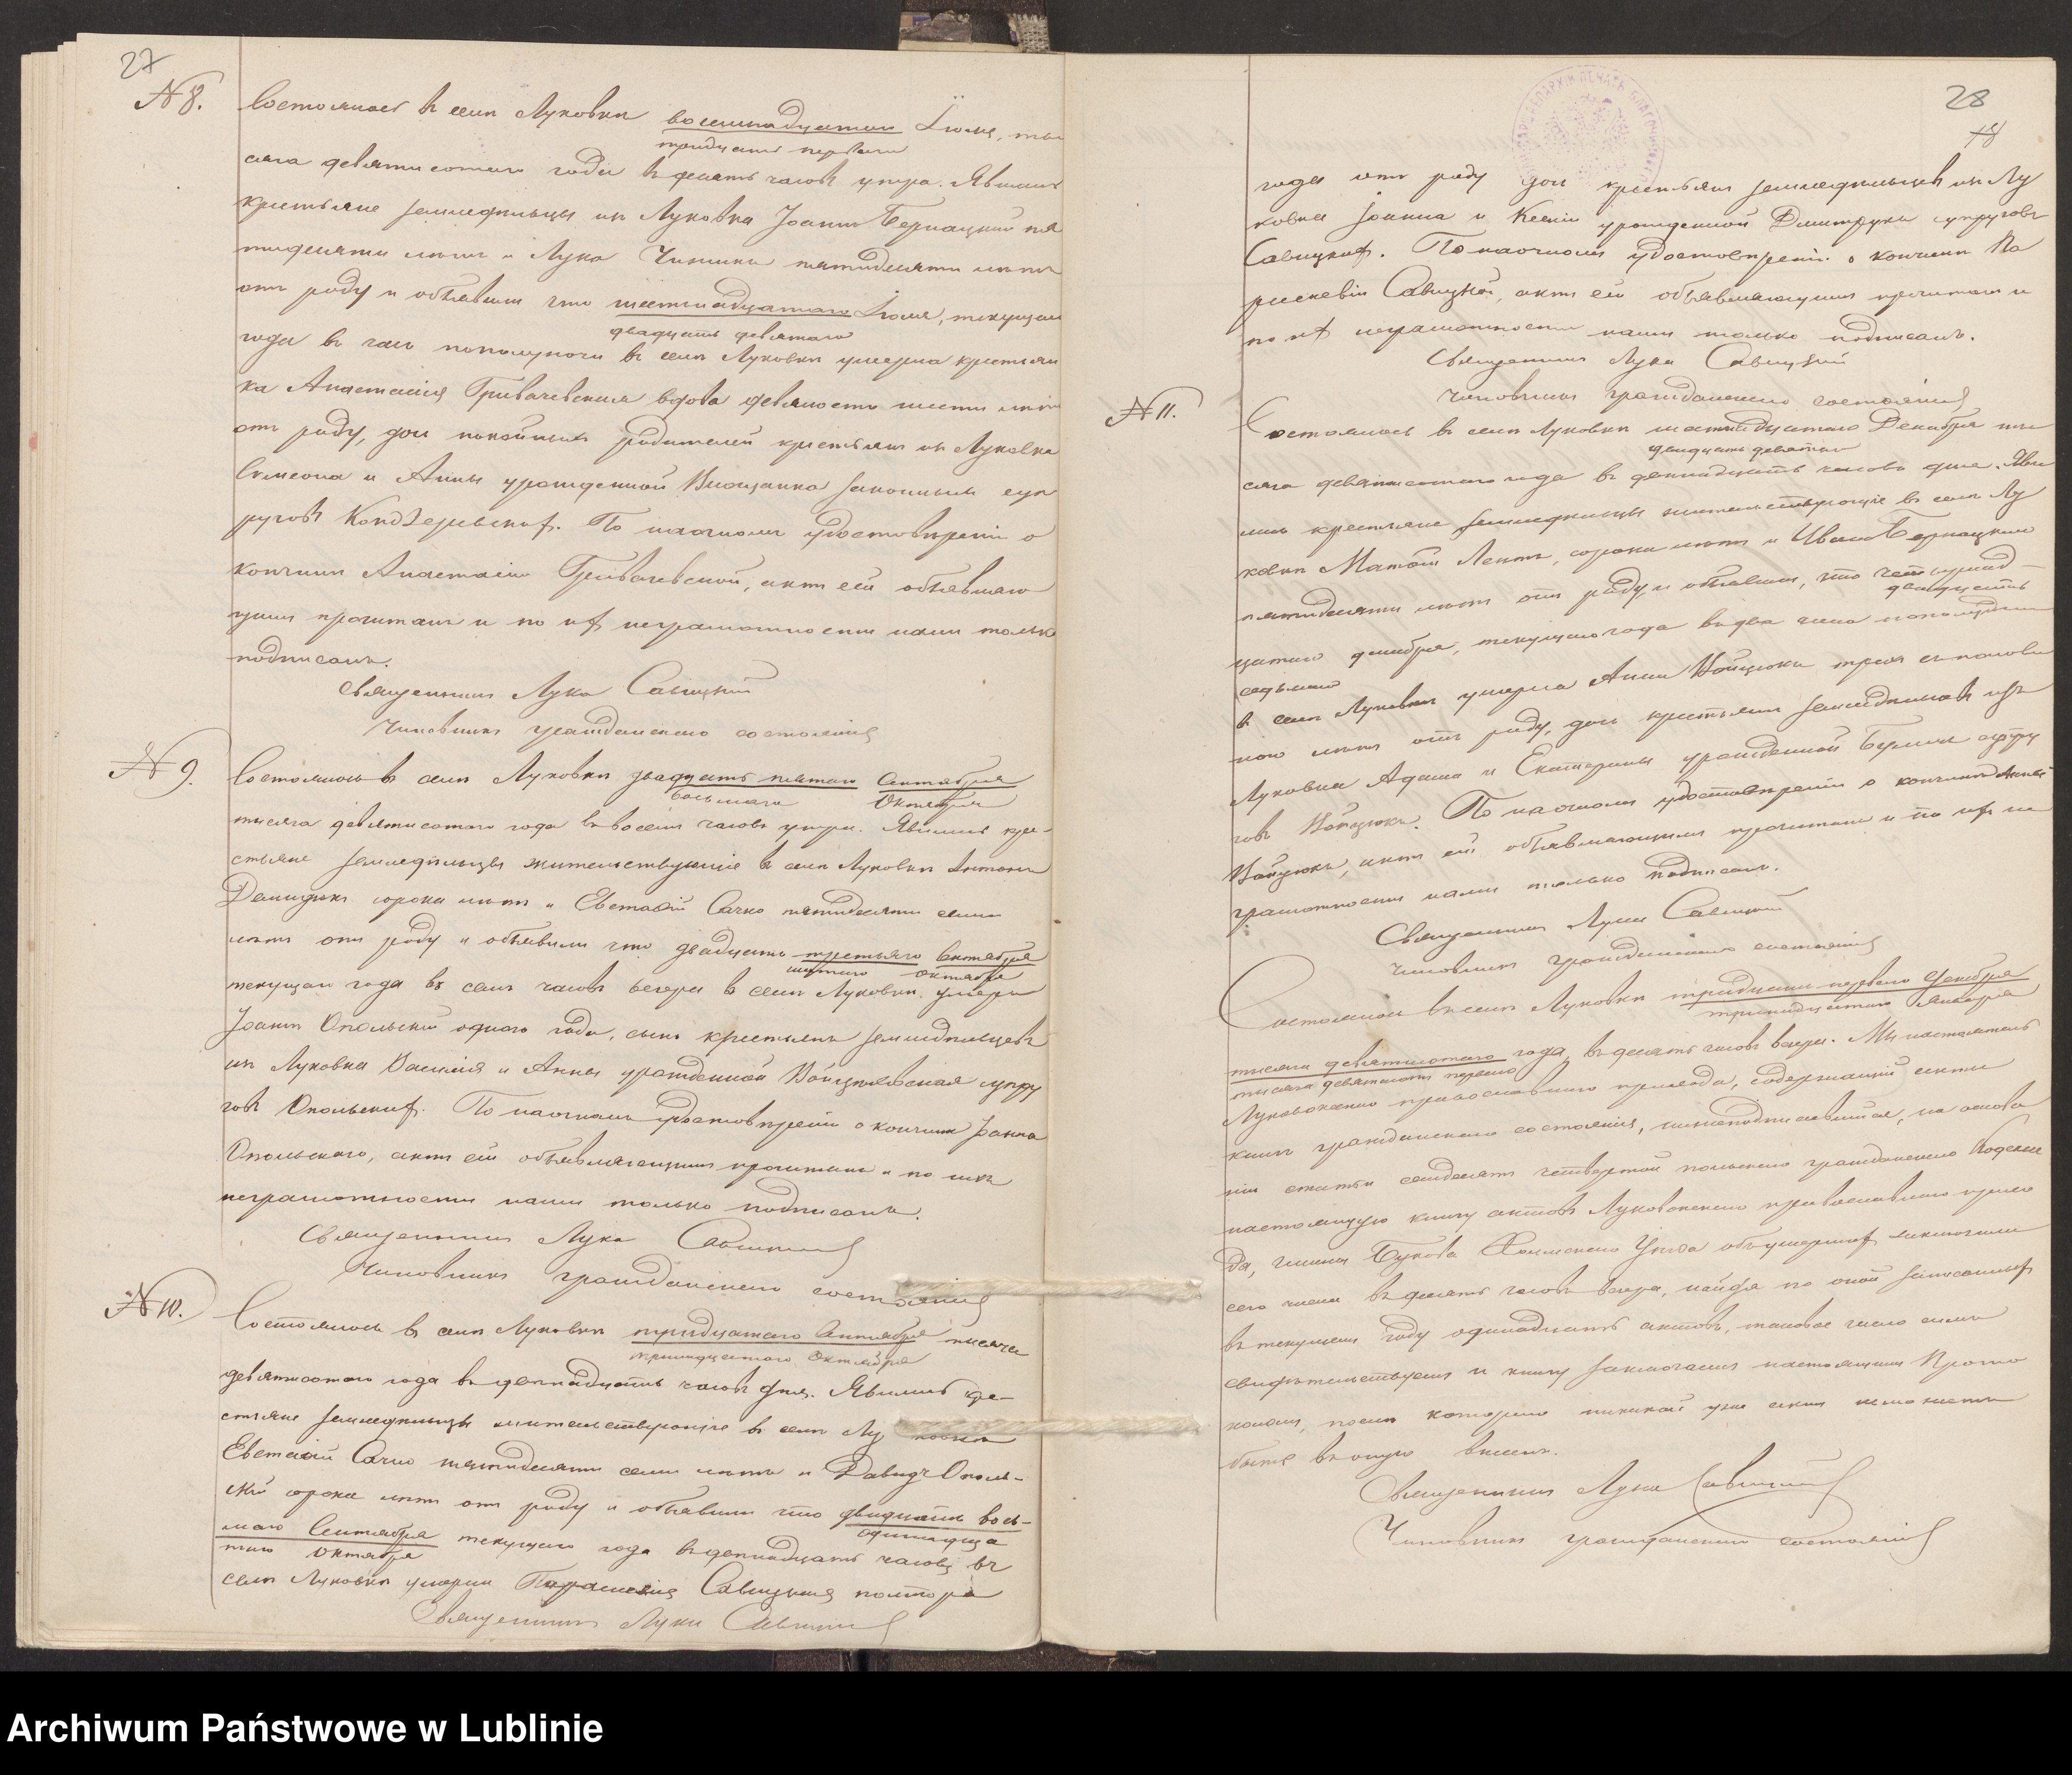 27
№ 8.
Состоялось въ селѣ Луковкѣ восемнадцатаго Іюля, ты
тридцать перваго
сяча девятисотаго года въ десять часовъ утра. Явились
крестьяне земледѣльцы изъ Луковка Іоаннъ Бернацкій пя
тидесяти лѣтъ и Лука пятидесяти лѣтъ
отъ роду и объявили что шестнадцатаго Іюля, текущаго
двадцать девятаго
года въ часъ пополуночи въ селѣ Луковкѣ умерла крестьян
ка Анастасія Гривачевская вдова девяносто шести лѣтъ
отъ роду, дочь покойныхъ родителей крестьянъ изъ Луковка
Симеона и Анны урожденной законныхъ суп
руговъ По наочномъ удостовѣреніи о
кончинѣ Анастасіи Гривачевской, актъ сей объявляю
щимъ прочитанъ и по ихъ неграмотности нами только
подписанъ.
Священникъ Лука Савицкій
Чиновникъ гражданскаго состоянія
№ 9.
Состоялось въ селѣ Луковкѣ двадцать пятаго Сентября
восьмаго Октября
тысяча девятисотаго года въ восемь часовъ утра. Явились кре-
стьяне земледѣльцы жительствующіе въ селѣ Луковкѣ Антонъ
Демидюкъ сорока лѣтъ и Евстафій Сачко пятидесяти семи
лѣтъ отъ роду и объявили что двадцать третьяго Сентября
шестаго Октября
текущаго года въ семь часовъ вечера въ селѣ Луковкѣ умеръ
Іоаннъ Опольскій одного года, сынъ крестьянъ земледѣльцевъ
изъ Луковка Василія и Анны урожденной супру
говъ Опольскихъ. По наочномъ удостовѣреніи о кончинѣ Іоанна
Опольскаго, актъ сей объявляющимъ прочитанъ и по ихъ
неграмотности нами только подписанъ.
Священникъ Лука Савицкій
Чиновникъ гражданскаго состоянія
№ 10.
Состоялось въ селѣ Луковкѣ тридцатаго Сентября тысяча
тринадцатаго Октября
девятисотаго года въ двѣнадцать часовъ дня. Явились кре-
стьяне земледѣльцы жительствующіе въ селѣ Лу ковкѣ
Евстафій Сачко пятидесяти семи лѣтъ и Давидъ Ополь-
скій сорока лѣтъ отъ роду и объявили что двадцать вось-
одинадца
маго Сентября текущаго года въ двѣнадцать часовъ въ
таго Октября
селѣ Луковкѣ умерла Параскевія Савицкая полтора
Священникъ Лука Савицкій
28
года отъ роду дочь крестьянъ земледѣльцевъ изъ Лу
ковка Іоанна и Ксеніи урожденной Дмитрукъ супруговъ
Савицкихъ. По наочномъ удостовѣреніи о кончинѣ Па
раскевіи Савицкой, актъ сей объявляющимъ прочитанъ и
по ихъ неграмотности нами только подписанъ.
Священникъ Лука Савицкій
Чиновникъ гражданскаго состоянія
№ 11.
Состоялось въ селѣ Луковкѣ шестнадцатаго Декабря ты
двадцать девятаго
сяча девятисотаго года въ двѣнадцать часовъ дня. Яви
лись крестьяне земледѣльцы жительствующіе въ селѣ Лу
ковкѣ Матѳій сорока лѣтъ и Иванъ Бернацкій
пятидесяти лѣтъ отъ роду, и объявили, что четырнад-
двадцать
цатаго декабря, текущаго года въ два часа пополудни
седьмаго
въ селѣ Луковкѣ умерла Анна Войцюкъ трехъ съ полови
ною лѣтъ отъ роду, дочь крестьянъ земледѣльцевъ изъ
Луковка Адама и Екатерины урожденной супру
говъ Войцюкъ. По наочномъ удостовѣреніи о кончинѣ Анны
Войцюкъ, актъ сей объявляющимъ прочитанъ и по ихъ не
грамотности нами только подписанъ.
Священникъ Лука Савицкій
Чиновникъ гражданскаго состоянія
Состоялось въ селѣ Луковкѣ тридцать перваго Декабря
тринадцатаго Января
тысяча девятисотаго года, въ десять часовъ вечера. Мы настоятель
тысяча девятьсотъ перваго
Луковскаго православнаго прихода, содержащій акты
книгъ гражданскаго состоянія, нижеподписавшійся, на основа
ніи статьи семдесять четвертой польскаго гражданскаго Кодекса
настоящую книгу актовъ Луковскаго православнаго прихо
да, гмины Букова Холмскаго Уѣзда объ умершихъ заключили
сего числа въ десять часовъ вечера, найдя по оной записанныхъ
въ текущемъ году одинадцать актовъ, таковое число симъ
свидѣтельствуемъ и книгу заключаемъ настоящимъ Прото
коломъ, послѣ котораго никакой уже актъ не можетъ
быть въ оную внесенъ.
Священникъ Лука Савицкій
Чиновникъ гражданскаго состоянія
Archiwum Państwowe w Lublinie